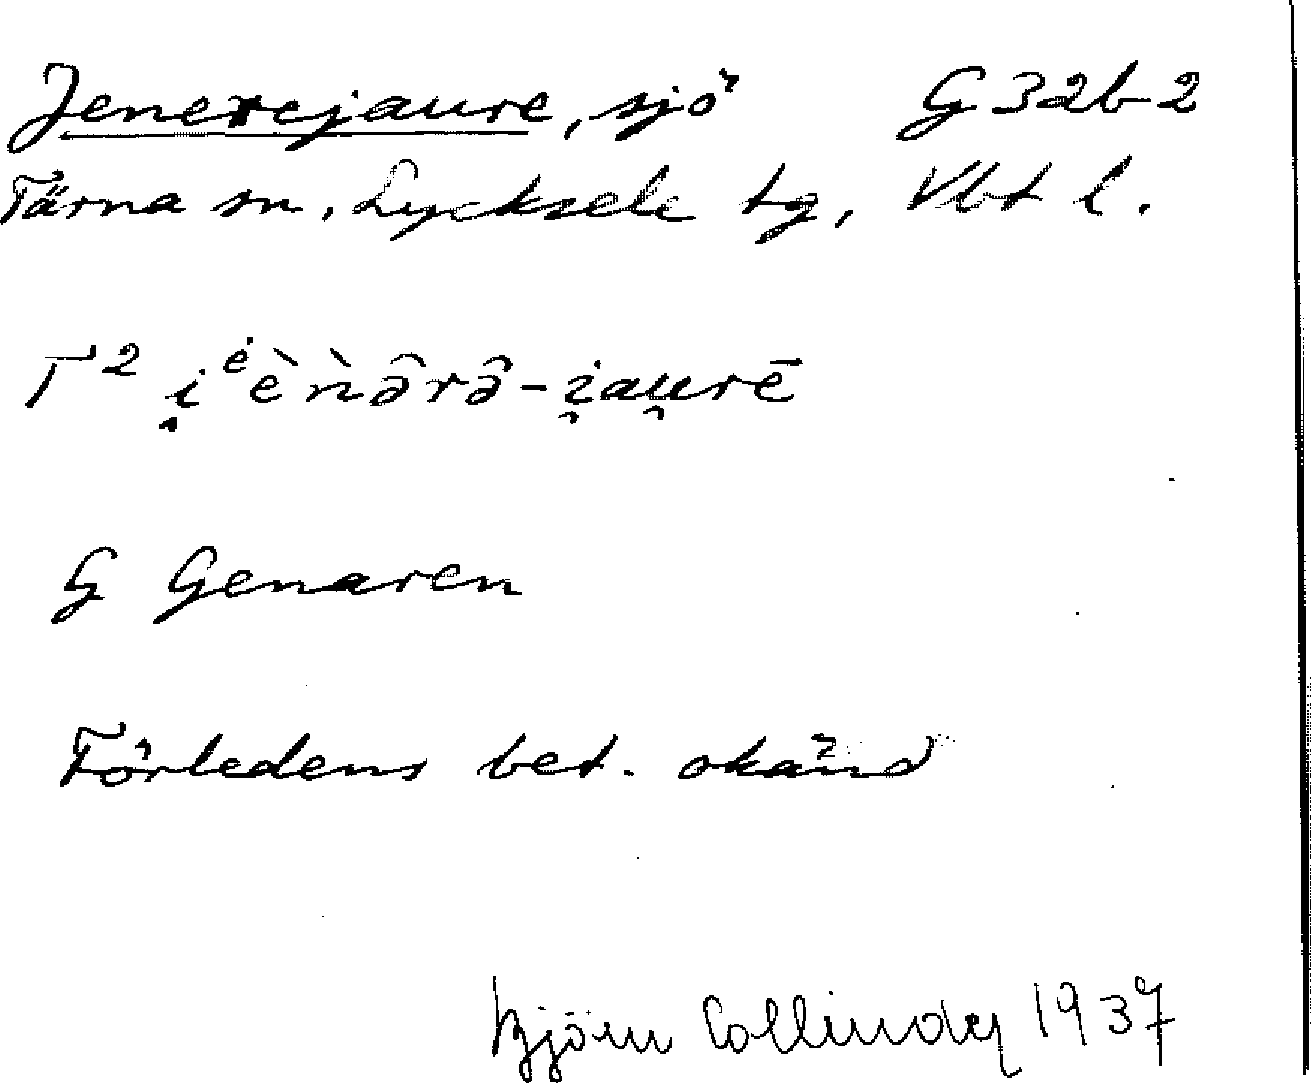 Jenerejaure, sjö G 32b 2
Tärna sn. Lycksele tg, Vbt l.
T² i̯ᵉ̇èǹârâ-i̯au̯rē
G Genaren
Förledens bet. okänd
Björn Collinder 1937